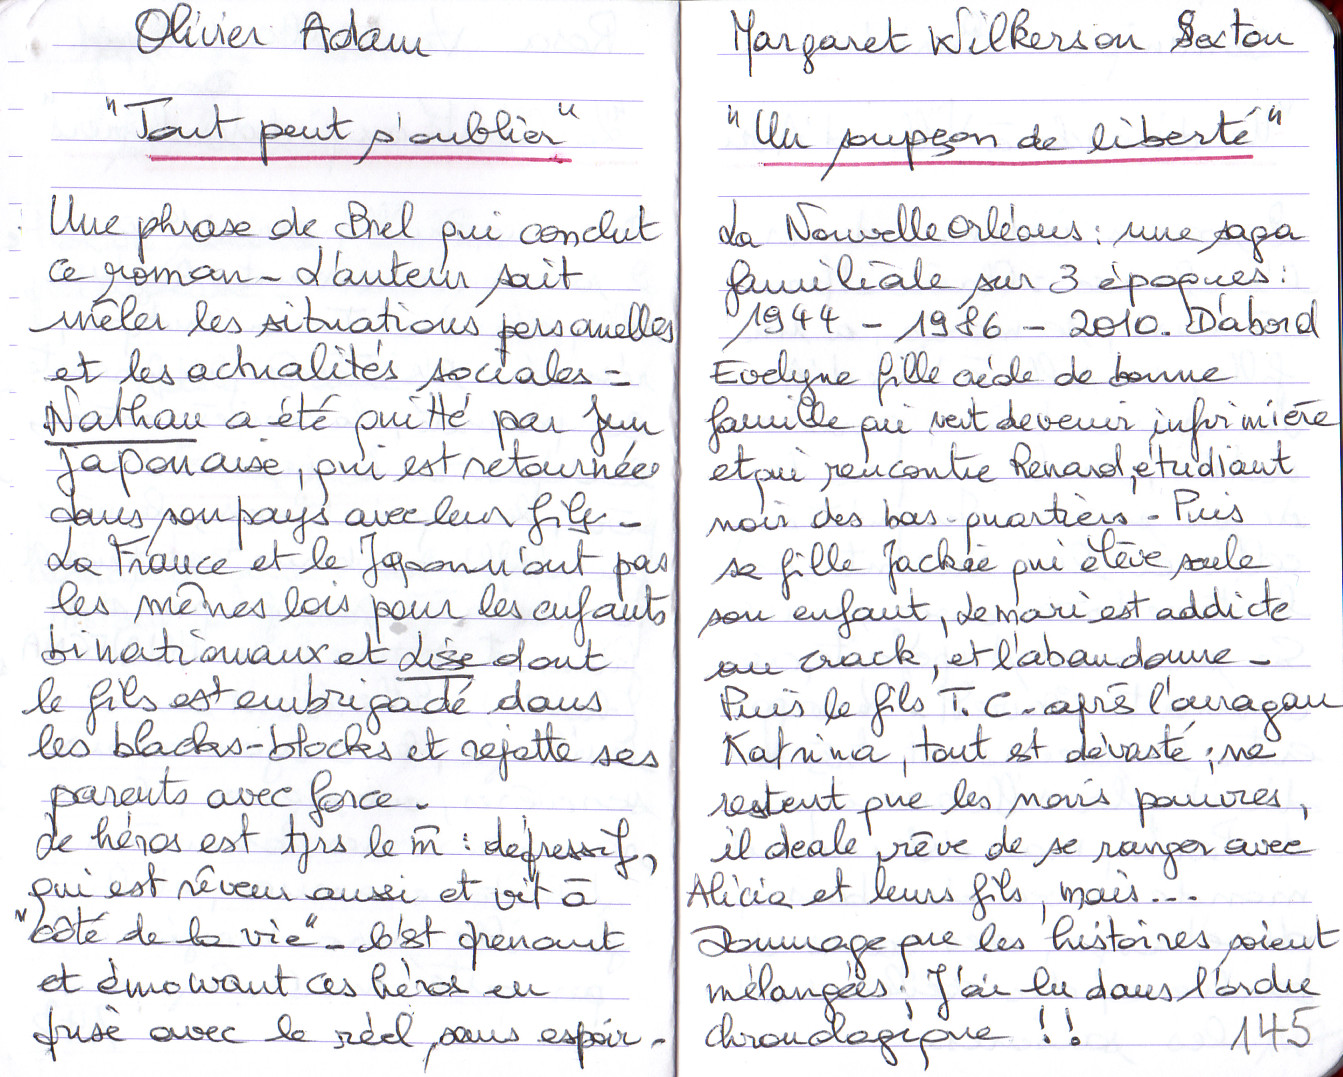 Olivier Adam
"Tout peut s'oublier"
Une phrase de Brel qui conclut
ce roman - L'auteur sait
mêler les situations personnelles
et les actualités sociales =
Nathan a été quitté par Jun
japonaise, qui est retournée
dans son pays avec leur fils -
La France et le Japon n'ont pas
les mêmes lois pour les enfants
binationaux et Lise dont
le fils est embrigadé dans
les blacks-blocks et rejette ses
parents avec force.
Le héros est tjrs le m̄ : dépressif,
qui est rêveur aussi et vit à
"côté de la vie" - C'est prenant
et émouvant ces héros en
prise avec le réel, sans espoir -
Margaret Wilkerson Sexton
"Un soupçon de liberté"
La Nouvelle Orléans : une saga
familiale sur 3 époques :
1944 - 1986 - 2010. D'abord
Evelyne fille créole de bonne
famille qui veut devenir infirmière
et qui rencontre Renard, étudiant
noir des bas-quartiers - Puis
sa fille Jackie qui élève seule
son enfant, le mari est addicte
au crack, et l'abandonne -
Puis le fils T.C. - après l'ouragan
Katrina, tout est dévasté ; ne
restent que les noirs pauvres,
il deale, rêve de se ranger avec
Alicia et leurs fils, mais...
Dommage que les histoires soient
mélangées ; J'ai lu dans l'ordre
chronologique !!
145